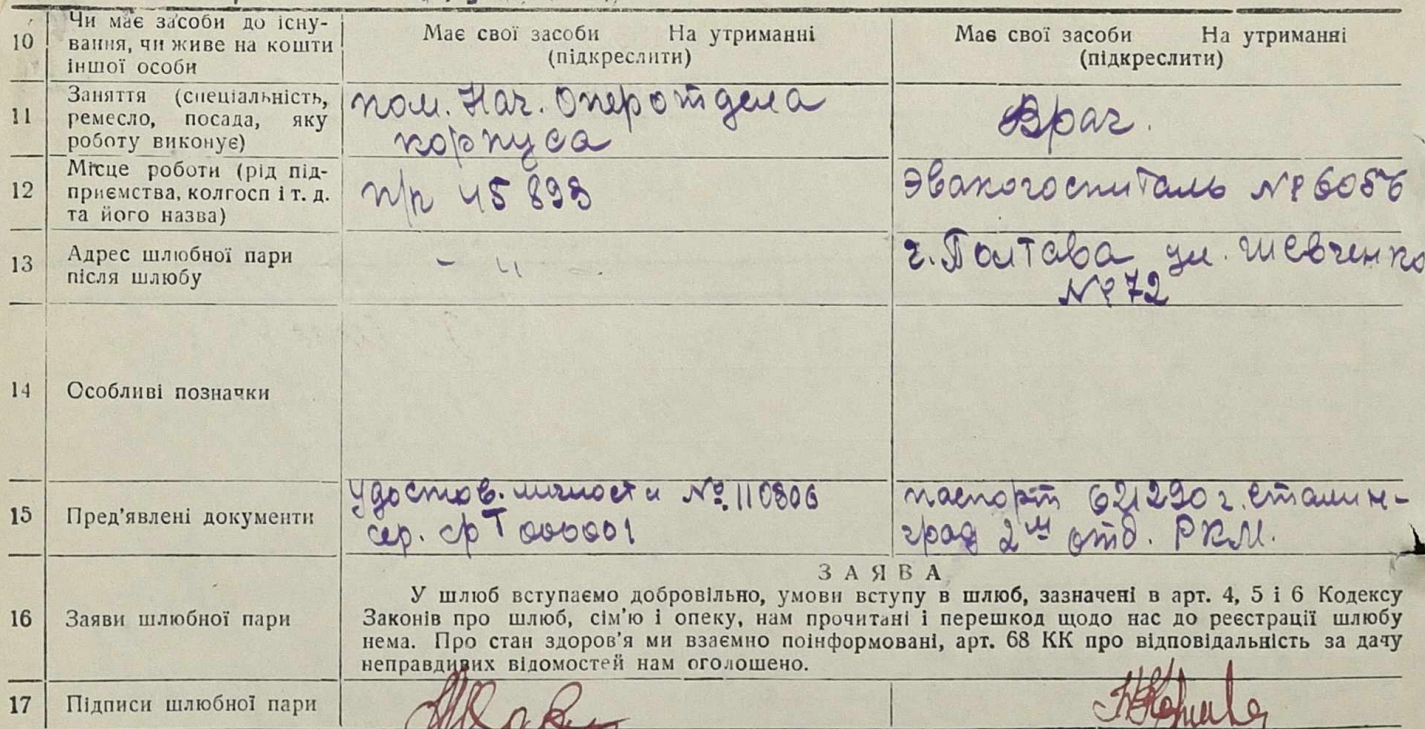 10 Чи має засоби до існу-
вання, чи живе на кошти
іншої особи
Має свої засоби На утриманні
(підкреслити)
Має свої засоби На утриманні
(підкреслити)
11 Заняття (спеціальність,
ремесло, посада, яку
роботу виконує)
пом. Нач. Оперотдела
корпуса
Врач.
12 Місце роботи (рід під-
приємства, колгосп і т. д.
та його назва)
п/п 45893
Эвакогоспиталь №6056
13 Адрес шлюбної пари
після шлюбу
- " -
г. Полтава ул. Шевченко
№72
14 Особливі позначки
15 Пред'явлені документи
удостов. личности №110806
сер. ср Т 000001
паспорт 621290 г. Сталин-
град 2м отд. РКМ.
ЗАЯВА
16 Заяви шлюбної пари
У шлюб вступаємо добровільно, умови вступу в шлюб, зазначені в арт. 4, 5 і 6 Кодексу
Законів про шлюб, сім'ю і опеку, нам прочитані і перешкод щодо нас до реєстрації шлюбу
нема. Про стан здоров'я ми взаємно поінформовані, арт. 68 КК про відповідальність за дачу
неправдивих відомостей нам оголошено.
17 Підписи шлюбної пари